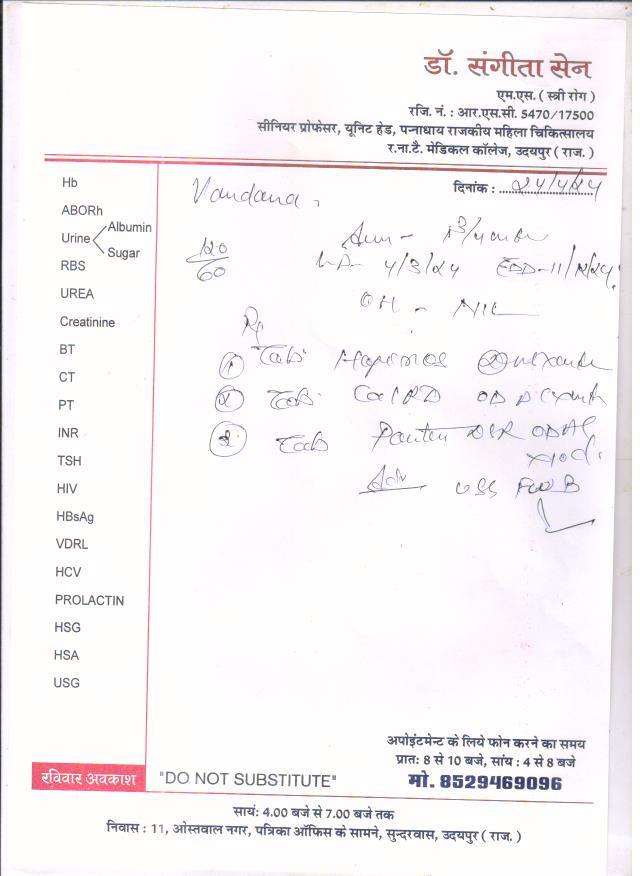 डॉ. संगीता सेन
एम.एस. ( स्त्री रोग )
रजि. नं. : आर.एस.सी. 5470/17500
सीनियर प्रोफेसर, यूनिट हेड, पन्नाधाय राजकीय महिला चिकित्सालय
र.ना.टै. मेडिकल कॉलेज, उदयपुर ( राज. )
दिनांक : 24/4/24
Vandana
120/60
4/3/24 EDD-11/12/24
OH - NIL
Rx
① Tab.
② Tab. OD
③ Tab DSR OD
Adv
Hb
ABORh
Urine Albumin
Sugar
RBS
UREA
Creatinine
BT
CT
PT
INR
TSH
HIV
HBsAg
VDRL
HCV
PROLACTIN
HSG
HSA
USG
अपोइंटमेन्ट के लिये फोन करने का समय
प्रातः 8 से 10 बजे, सांय : 4 से 8 बजे
रविवार अवकाश "DO NOT SUBSTITUTE" मो. 8529469096
सायंः 4.00 बजे से 7.00 बजे तक
निवास : 11, ओस्तवाल नगर, पत्रिका ऑफिस के सामने, सुन्दरवास, उदयपुर ( राज. )